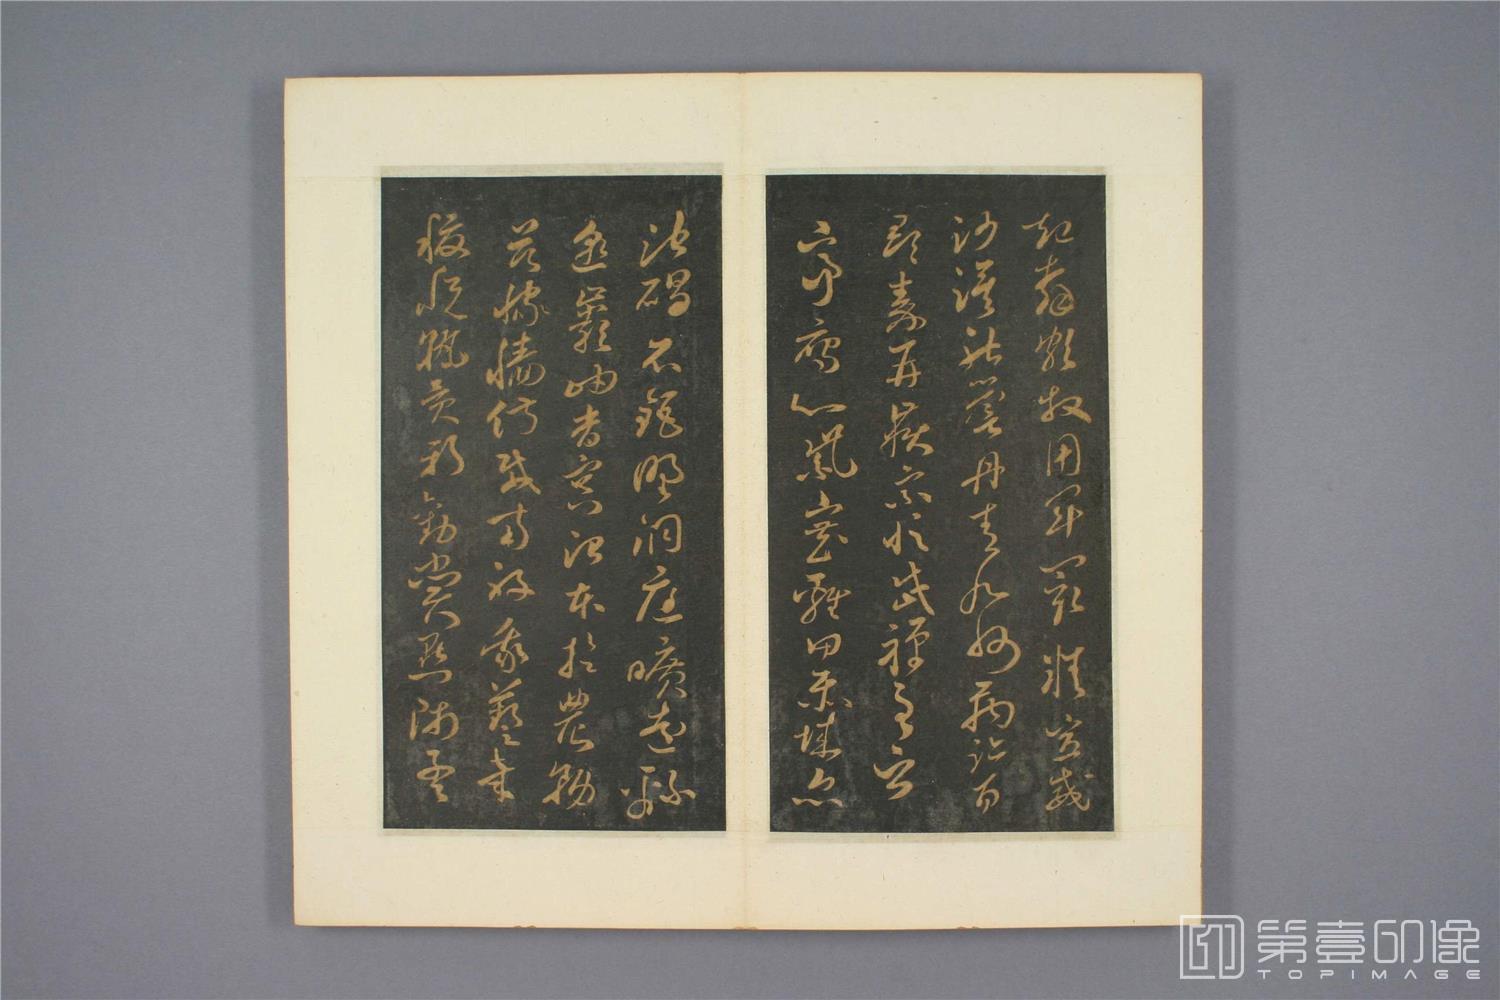 起翦頗牧用軍最精宣威
沙漠馳譽丹青九州禹跡百
郡秦并嶽宗恒岱禪主云
亭雁門紫塞雞田赤城昆
池碣石鉅野洞庭曠遠綿
邈巖岫杳冥治本於農務
茲稼穡俶載南畝我藝黍
稷稅熟貢新勸賞黜陟孟
第壹印像
TOPIMAGE